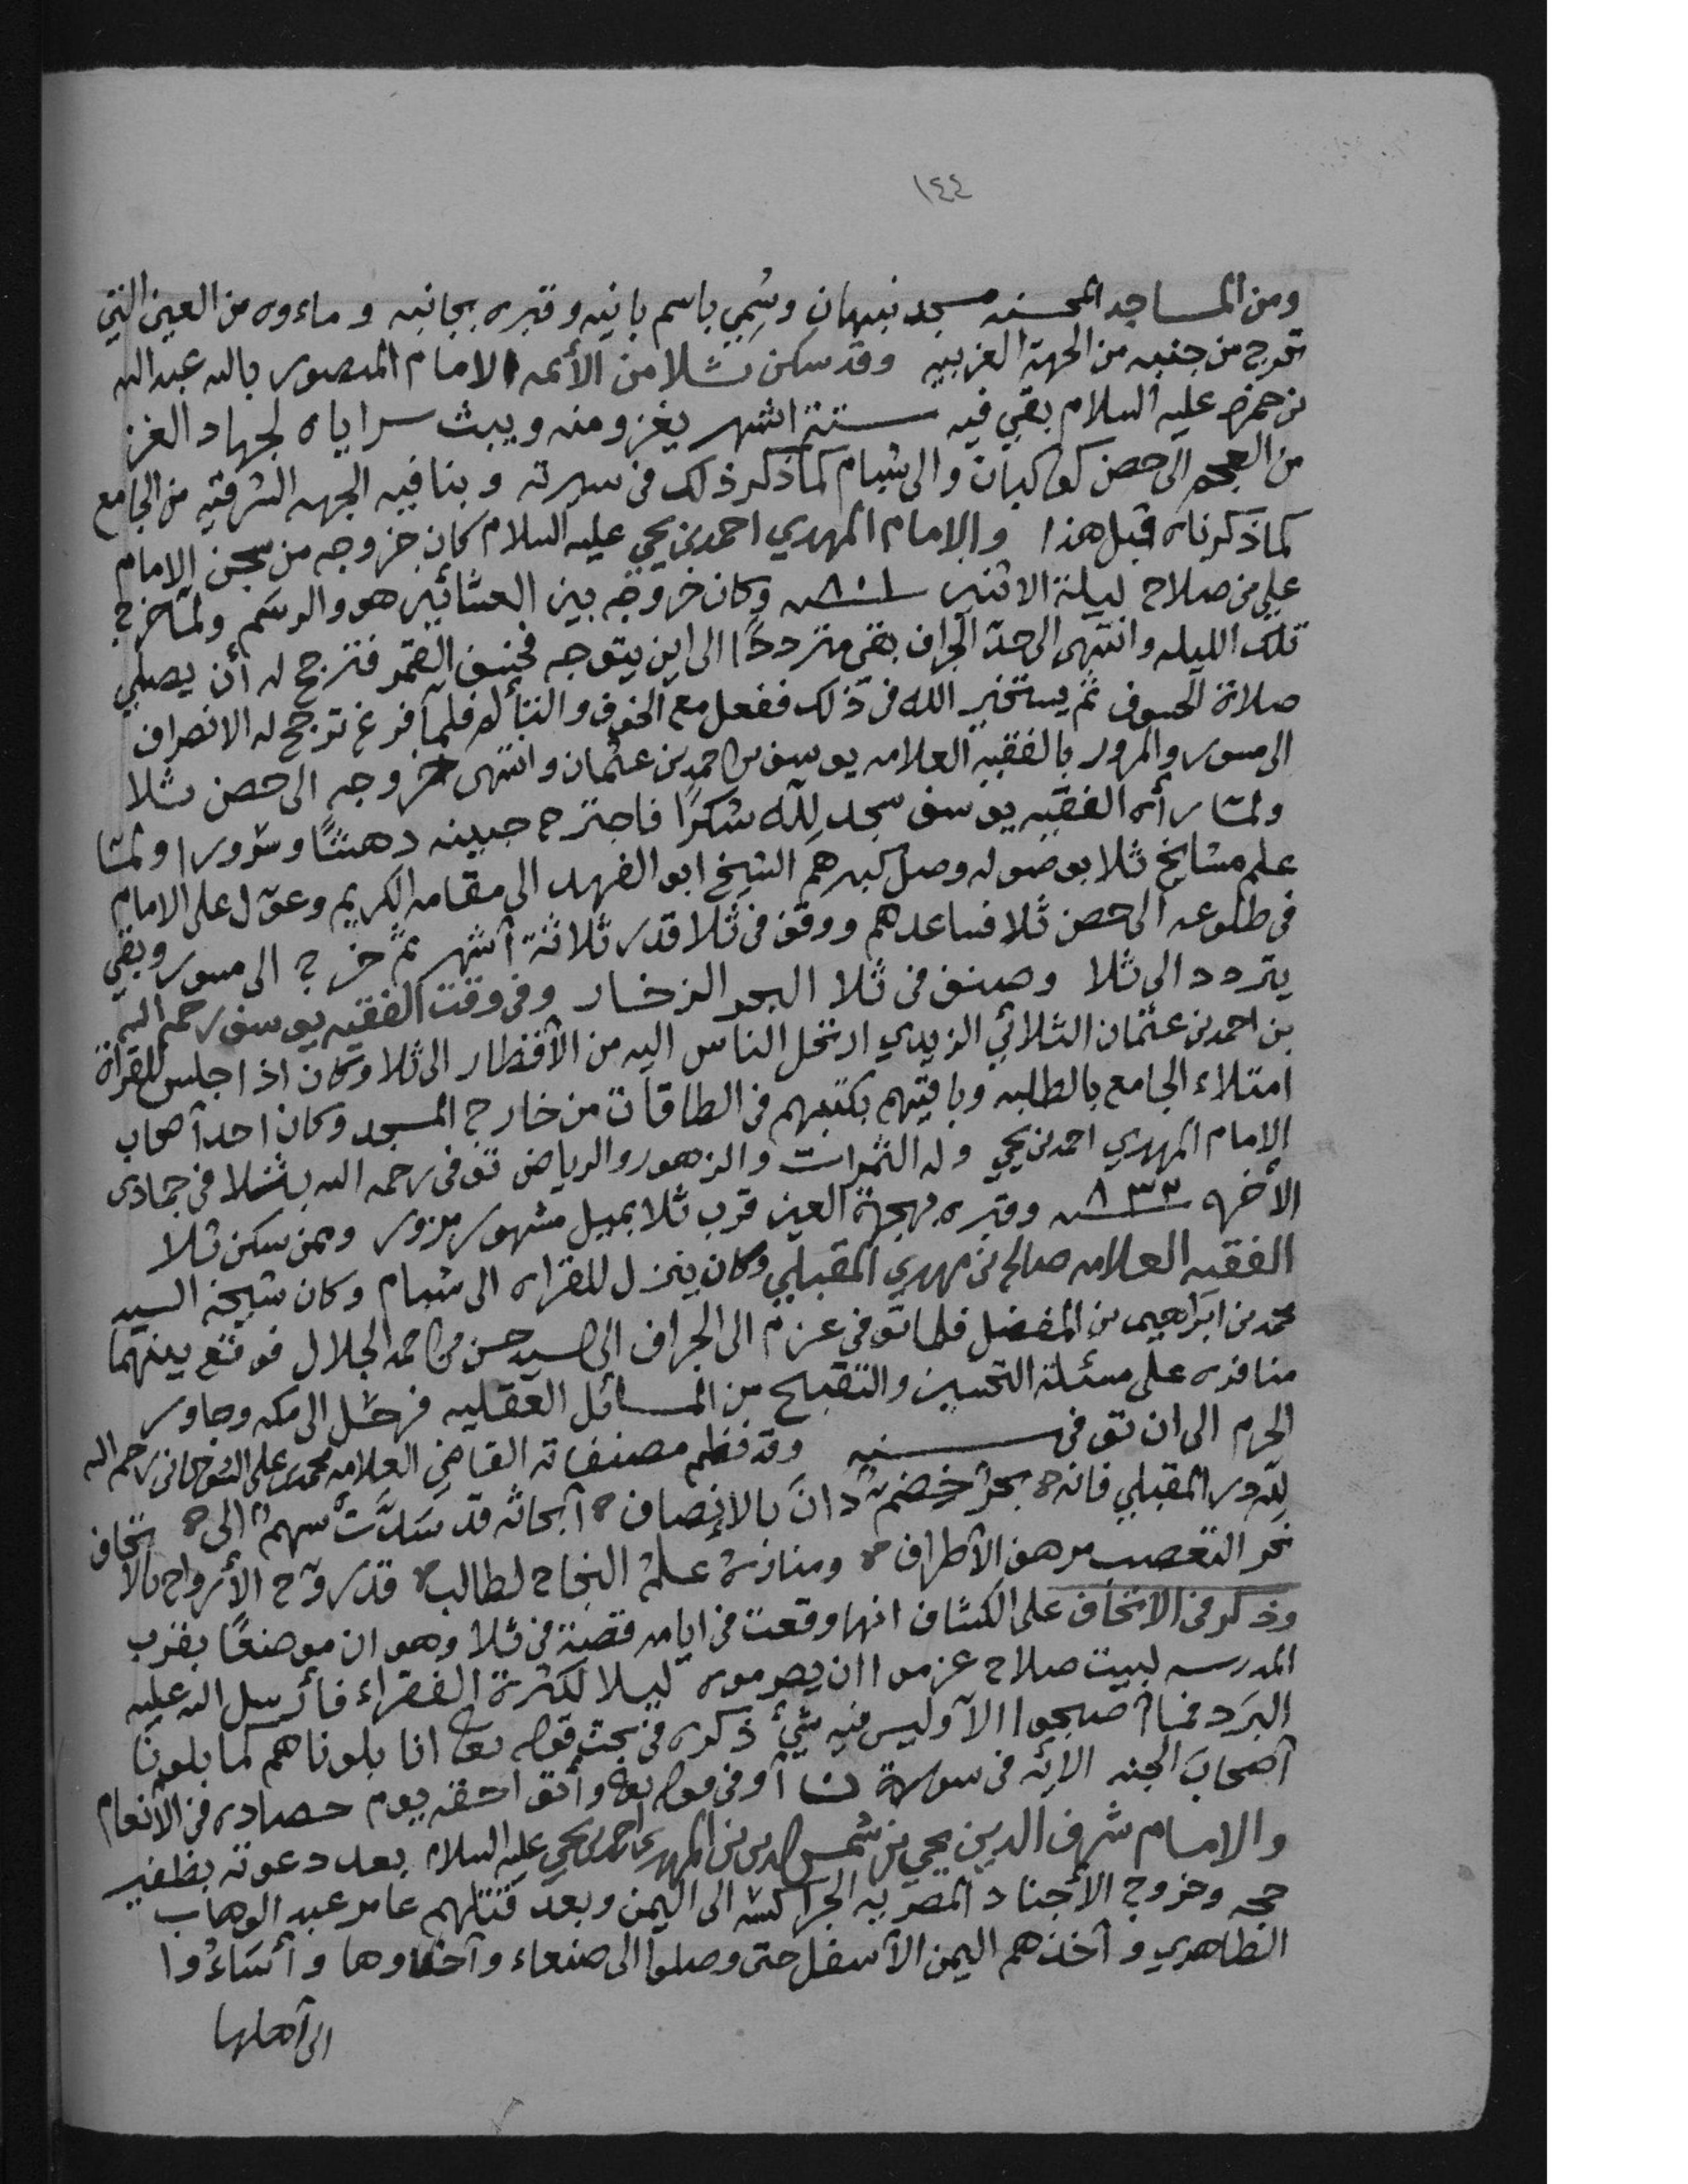 ١٤٤
ومن المساجد المحسنه مسجد نبهان وسُمي باسم بانيه وقبره بجانبه وماءوه من العين التي
تخرج من جنبه من الجهة الغربيه وقد سكن بثلا من الأئمه الامام المنصور بالله عبدالله
بن حمزه عليه السلام بقي فيه ستة اشهر يغزو منه ويبث سراياه لجهاد الغز
من العجم الى حصن كوكبان والى شبام كما ذكر ذلك في سيرته وبنا فيه الجهه الشرقيه من الجامع
كما ذكرناه قبل هذا والامام المهدي احمد بن يحيي عليه السلام كان خروجه من سجن الامام
علي بن صلاح ليلة الاثنين سنه ٨٠١ وكان خروجه بين العشائين هو والرسم ولما خرج
تلك الليله وانتهى الى حدّ الجراف بقي مترددًا الى اين يتوجه فخسف القمر فترجح له أن يصلي
صلاة الخسوف ثم يستخير الله في ذلك ففعل مع الخوف والتباله فلما فرغ ترجح له الانصراف
الى مسور والمرور بالفقيه العلامه يوسف بن احمد بن عثمان وانتهى خروجه الى حصن ثلا
ولما رأه الفقيه يوسف سجد لله شكرًا فاجترح جبينه دهشًا وسرورا ولما
علم مشايخ ثلا بوصوله وصل كبيرهم الشيخ ابو الفهد الى مقامه الكريم وعوّل على الامام
في طلوعه الى حصن ثلا فساعدهم ووقف في ثلا قدر ثلاثة أشهر ثم خرج الى مسور وبقي
يتردد الى ثلا وصنف في ثلا البحر الزخار وفي وقت الفقيه يوسف رحمه الله
بن احمد بن عثمان الثلائي الزيدي ارتحل الناس اليه من الأقطار الى ثلا وكان اذا جلس للقرأة
امتلاء الجامع بالطلبه وباقيهم بكتبهم في الطاقات من خارج المسجد وكان احد أصحاب
الامام المهدي احمد بن يحيي وله الثمرات والزهور والرياض توفى رحمه الله بثلا في جمادى
الأخره سنه ٨٣٢ وقبره بهجرة العين قرب ثلا بميل مشهور مزور وممن سكن ثلا
الفقيه العلامه صالح بن مهدي المقبلي وكان ينزل للقراه الى شبام وكان شيخه السيد
محمد بن ابراهيم بن المفضل فلما توفى عزم الى الجراف الى السيد حسن بن احمد الجلال فوقع بينهما
منافره على مسئلة التحسين والتقبيح من المسائل العقليه فرحل الى مكه وجاور
الحرم الى ان توفى سنه وقد نظم مصنفاته القاضي العلامه محمد بن علي الشوكاني رحمه الله
للّه در المقبلي فانه بحرٌ خِضَمٌ دانَ بالإنصاف أبحاثه قد سَدَّدَت سهمًا الى
نحر التعصب مرهف الأطراف ومناره علمُ النجاح لطالب قد روّح الأرواح بالاتحاف
وذكر في الاتحاف على الكشاف انها وقعت في ايامه قضية في ثلا وهو ان موضعًا بقرب
المدرسه لبيت صلاح عزموا ان يصرموه ليلا لكثرة الفقراء فأرسل الله عليه
البرَد فما أصبحوا الا وليس فيه شيء ذكره في بحث قوله تعالى انا بلوناهم كما بلونا
أصحاب الجنه الايه في سورة ن أو في قوله تعالى وأتوا حقه يوم حصاده في الأنعام
والامام شرف الدين يحيي بن شمس الدين بن المهدي احمد بن يحيي عليه السلام بعد دعوته بظفير
حجه وخروج الأجناد المصريه الجراكسه الى اليمن وبعد قتلهم عامر عبد الوهاب
الطاهري وأخذهم اليمن الأسفل حتى وصلوا الى صنعاء وأخذوها وأساءُوا
الى أهلها